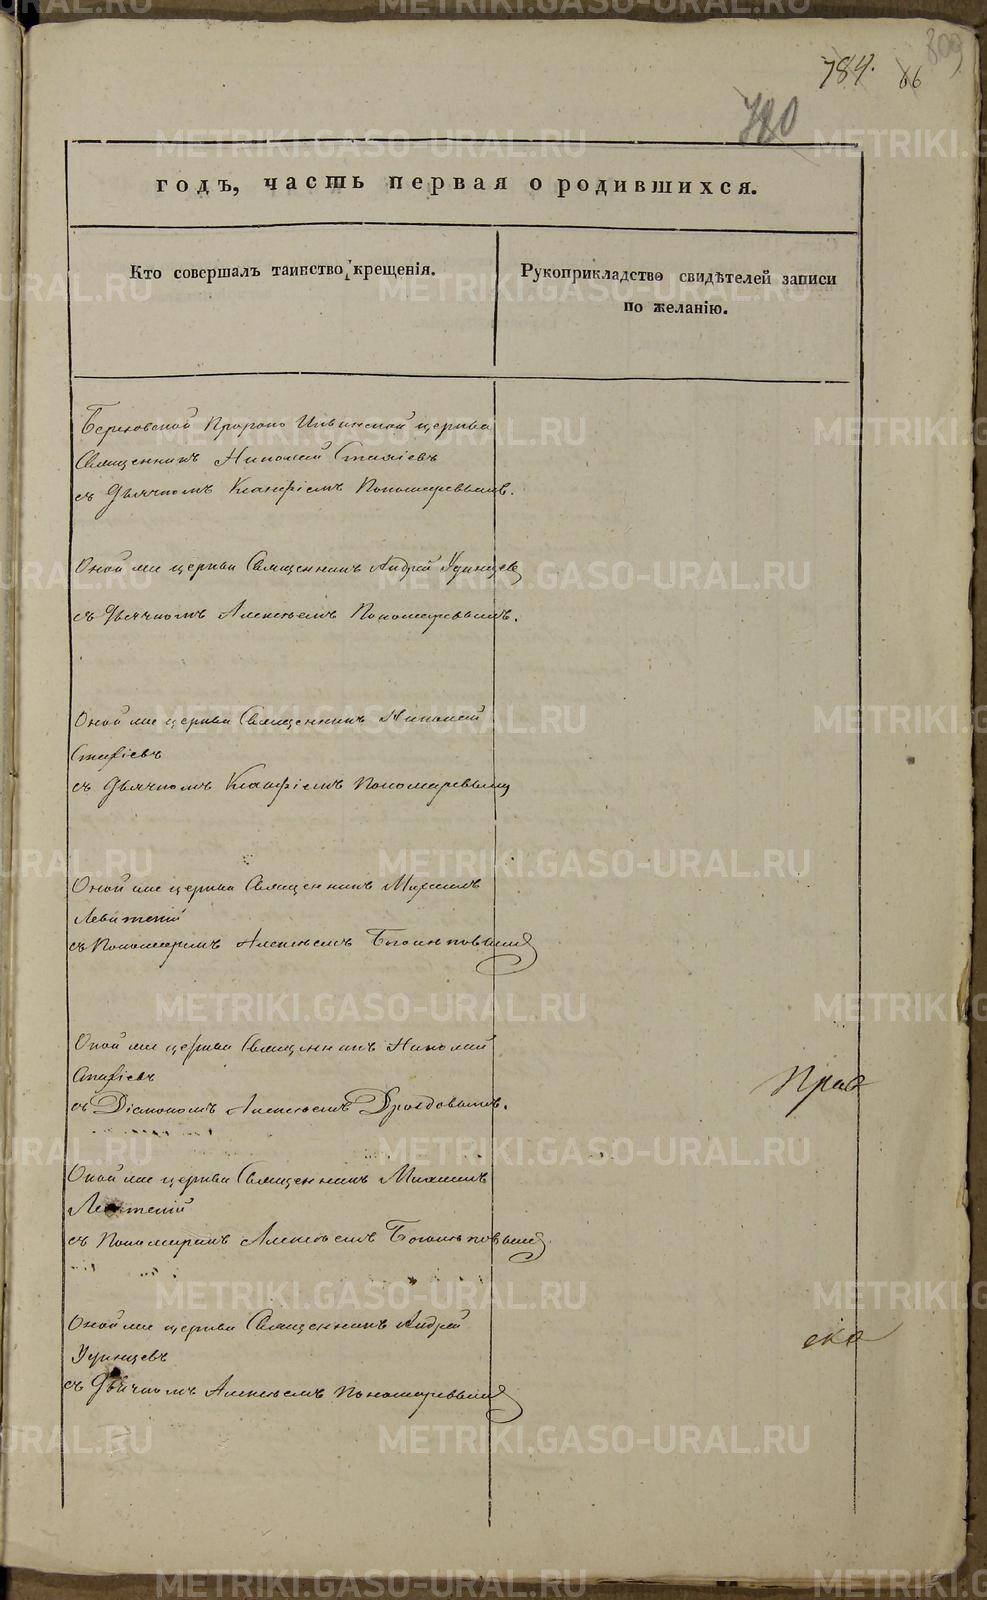 809
784. 66
780
годъ, часть первая о родившихся.
Кто совершалъ таинство крещенія.
Рукоприкладство свидѣтелей записи
по желанію.
Пророко Ильинской церкви
Священникъ Николай Стахіевъ
съ Дьячкомъ Клавдіемъ Пономаревымъ.
Оной же церкви Священникъ Андрей Удинцев
съ Дьячкомъ Алексѣемъ Пономаревымъ.
Оной же церкви Священникъ Николай
Стахіевъ
съ Дьячкомъ Клавдіемъ Пономаревымъ
Оной же церкви Священникъ Михаилъ
Левитскій
съ Пономаремъ Алексѣемъ
Оной же церкви Священникъ Николай
Стахіевъ
съ Діакономъ Алексѣемъ Дроздовымъ.
Прав
Оной же церкви Священникъ Михаилъ
Левитскій
съ Пономаремъ Алексѣемъ
Оной же церкви Священникъ Андрей
Удинцевъ
съ Дьячкомъ Алексѣемъ Пономаревымъ
METRIKI.GASO-URAL.RU